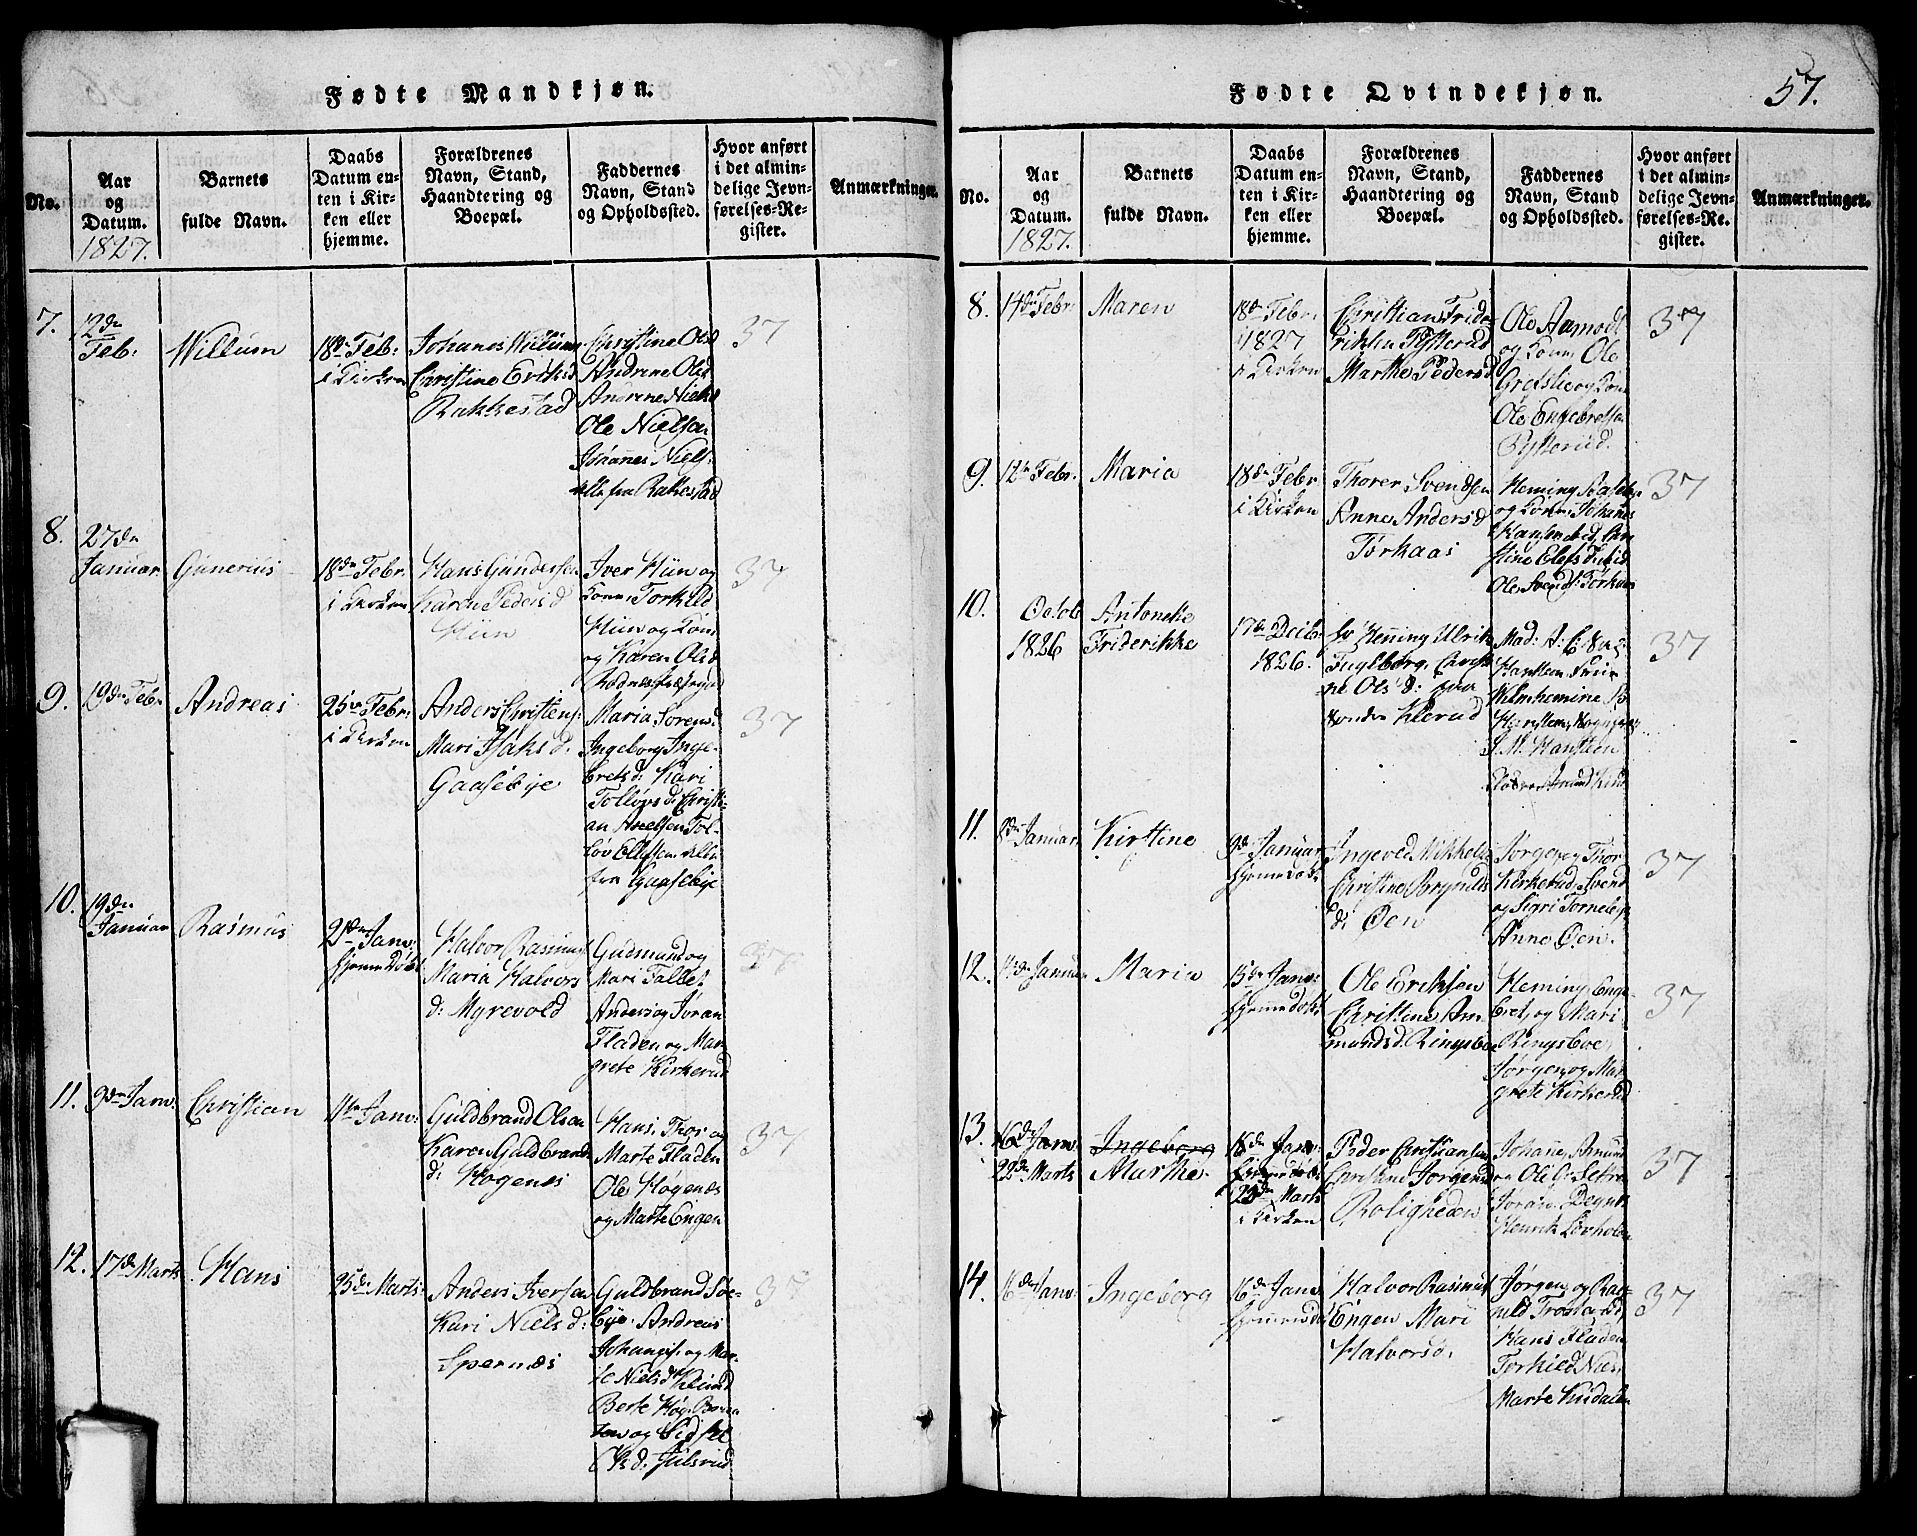 Fødte Mandkjøn.
No.
Aar
og
Datum.
1827.
Barnets
fulde Navn.
Daabs
Datum en-
ten i Kir-
ken eller
hjemme.
Forældrenes
Navn, Stand,
Haandtering og
Boepæl.
Faddernes
Navn, Stand
og Opholdssted.
Hvor anført
i det almin-
delige Jevn-
førelses-Re-
gister.
Anmærkninger.
7.
12de
Feb:
Willum
18de Feb:
i Kirken
Johanes Willum
Christine Eriksd
Rakkestad
Christine Olsd
Andrene Olsd
Andrene Niels
Ole Nielsen
Johannes Niels:
alle fra Rakestad
37
8.
27de
Januar
Gunerius
18de Febr:
i Kirken
Hans Gundersen
Karen Pedersd
Hiin
Iver Hiin og
Kone, Torkild
Hiin og Kone
og Karen Olsd
37
9.
19de Febr
Andreas
25de Febr:
i Kirken
Anders Christens:
Mari Isaksd:
Gaasebye
Maria Sørensd
Ingeborg Inge-
bretsd: Kari
Tolløvsd: Christi-
an Axelsen Tol-
løv Ollsen alle
fra Gaasebye
37
10.
19de
Januar
Rasmus
21de Janv:
hjemmedøbt
Halvor Rasmus
Maria Halvors
d: Myrevold
Gudmund og
Mari Falbet
Anders og Jøran
Fladen og Mar
grete Kirkerud
37
11.
9de Janv:
Christian
11te Janv:
Guldbrand Olsen
Karen Guldbrand
d: Hogenæs
Hans, Thor og
Marte Fladen
Ole Hogenæs
og Marte Engen
37
12.
17de Marts
Hans
25de Marts:
Anders Iversen
Kari Nielsd:
Spernæs
Guldbrand Søe-
bye. Andreas
Johannis. og Mar-
te Nielsd
Berte Høg.
og Sidsel
d: Julsrud
37
Fødte Qvindekjøn.
57.
No.
Aar
og
Datum.
1827.
Barnets
fulde Navn.
Daabs
Datum en-
ten i Kir-
ken eller
hjemme.
Forældrenes
Navn, Stand,
Haandtering og
Boepæl.
Faddernes
Navn, Stand
og Opholdssted.
Hvor anført
i det almin-
delige Jevn-
førelses-Re-
gister.
Anmærkninger.
8.
14de Febr:
Maren
18de Febr:
1827
i Kirken
Christian Fride-
rikken Pytterud
Marthe Pedersd
Ole Aamodt
og Kone, Ole
Grefslie og Kone
Ole Engebretsen
Pytterud.
37
9.
12te Febr.
Maria
18de Febr
i Kirken
Thorer Svendsen
Anne Andersd
Torkaas
Heming Gaasebye
og Kone, Johanes
Ole Svends: Torkaas
37
10.
Octob
1826
Antonette
Friderikke
17de Decb:
1826.
Henning Ulrik
Fuglborg,
ne Olsd:
Klerud
Mad: A:
Hansteen
Wilhelmine
J. M. Hansteen
37
11.
8de Januar
Kirstine
9de Januar
hjemmedøbt
Ingeved Mikkels
Christine Brynilds
d: Øen
Jørgen og Thor
Kirkerud, Svend
og Sigri Tornebye
Anne Øen.
37
12.
14de Januar
Maria
15de Janv:
hjemmedøbt
Ole Eriksen
Christine Am
mundsd: Ringsboe
Heming, Enge-
bret, og Mari
Ringsboe,
Jørgen, og Mar
grete Kirkerud
37
13.
16de Janv
22de Marts
Ingeborg
Marthe.
18de Janv:
hjemmedøbt
25de Marts
i Kirken
Peder Christiansen
Christine Jørgensd
Roligheden
Johane, Amund
og Ole G: Sætre
Jøran
Henrik Lørholen
37
14.
16de Janv:
Ingeborg
16de Janv
hjemmedøbt
Halvor Rasmus
Engen Mari
Halvorsd.
Jørgen og Rag-
nild Trosterud,
Hans Fladen
Torkild Næs,
Marte Kindalen
37